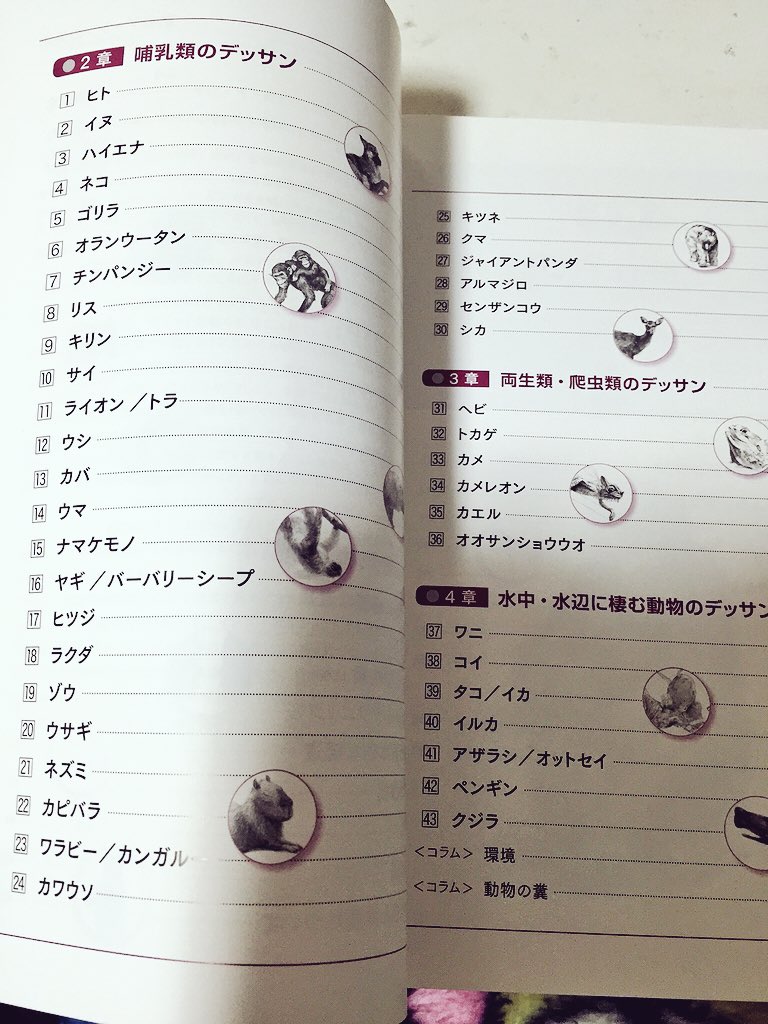 2章 哺乳類のデッサン
1 ヒト
2 イヌ
3 ハイエナ
4 ネコ
5 ゴリラ
6 オランウータン
7 チンパンジー
8 リス
9 キリン
10 サイ
11 ライオン／トラ
12 ウシ
13 カバ
14 ウマ
15 ナマケモノ
16 ヤギ／バーバリーシープ
17 ヒツジ
18 ラクダ
19 ゾウ
20 ウサギ
21 ネズミ
22 カピバラ
23 ワラビー／カンガルー
24 カワウソ
25 キツネ
26 クマ
27 ジャイアントパンダ
28 アルマジロ
29 センザンコウ
30 シカ
3章 両生類・爬虫類のデッサン
31 ヘビ
32 トカゲ
33 カメ
34 カメレオン
35 カエル
36 オオサンショウウオ
4章 水中・水辺に棲む動物のデッサン
37 ワニ
38 コイ
39 タコ／イカ
40 イルカ
41 アザラシ／オットセイ
42 ペンギン
43 クジラ
＜コラム＞ 環境
＜コラム＞ 動物の糞